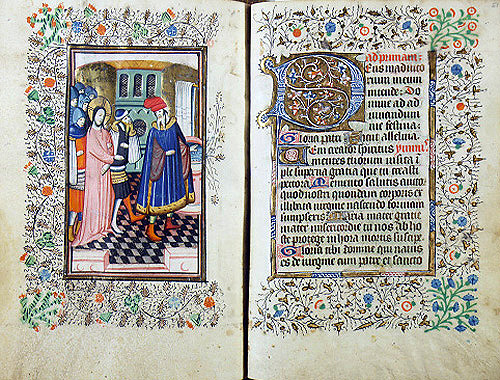 ad primam:
Deus in adiuto
rium meum in
tende: Do
mine ad ad
iuuandum
me festina:
Gloria pri alleluia.
Ueni creator spiritus
mentes tuorum uisita
ple superna gratia que tu creasti
pectora Memento salutis auctor
quod nostri quondam corporis ex
illibata uirgine nascendo formam
sumpseris Maria mater gratie
mater misericordie tu nos ab ho
ste protege in hora mortis suscipe
Gloria tibi domine qui natus
es de uirgine cum patre et sancto